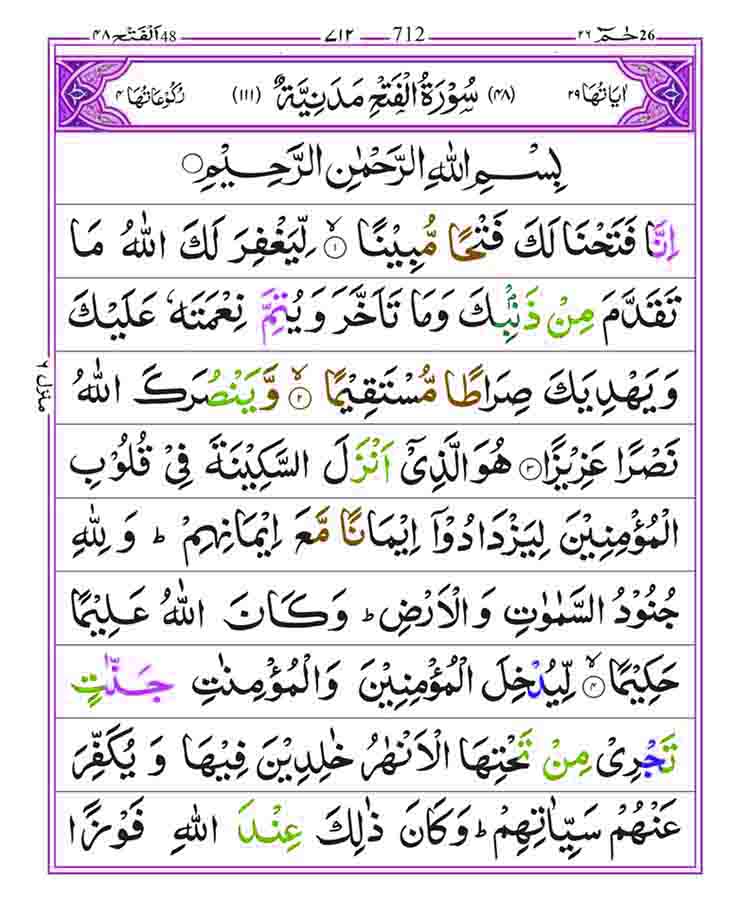 اَلْفَتْح 48 ٤٨ ٧١٢ 712 حٰمٓ 26 ٢٦
اٰيَاتُهَا ٢٩ (٤٨) سُوْرَةُ الْفَتْحِ مَدَنِيَّةٌ (١١١) رُكُوْعَاتُهَا ٤
بِسْمِ اللّٰهِ الرَّحْمٰنِ الرَّحِيْمِ○
اِنَّا فَتَحْنَا لَكَ فَتْحًا مُّبِيْنًا ۙ﴿١﴾ لِّيَغْفِرَ لَكَ اللّٰهُ مَا
تَقَدَّمَ مِنْ ذَنْۢبِكَ وَمَا تَاَخَّرَ وَيُتِمَّ نِعْمَتَهٗ عَلَيْكَ
وَيَهْدِيَكَ صِرَاطًا مُّسْتَقِيْمًا ۙ﴿٢﴾ وَّيَنْصُرَكَ اللّٰهُ
نَصْرًا عَزِيْزًا ﴿٣﴾ هُوَ الَّذِيْۤ اَنْزَلَ السَّكِيْنَةَ فِيْ قُلُوْبِ
الْمُؤْمِنِيْنَ لِيَزْدَادُوْۤا اِيْمَانًا مَّعَ اِيْمَانِهِمْ ؕ وَلِلّٰهِ
جُنُوْدُ السَّمٰوٰتِ وَالْاَرْضِ ؕ وَكَانَ اللّٰهُ عَلِيْمًا
حَكِيْمًا ۙ﴿٤﴾ لِّيُدْخِلَ الْمُؤْمِنِيْنَ وَالْمُؤْمِنٰتِ جَنّٰتٍ
تَجْرِيْ مِنْ تَحْتِهَا الْاَنْهٰرُ خٰلِدِيْنَ فِيْهَا وَيُكَفِّرَ
عَنْهُمْ سَيِّاٰتِهِمْ ؕ وَكَانَ ذٰلِكَ عِنْدَ اللّٰهِ فَوْزًا
منزل ٦